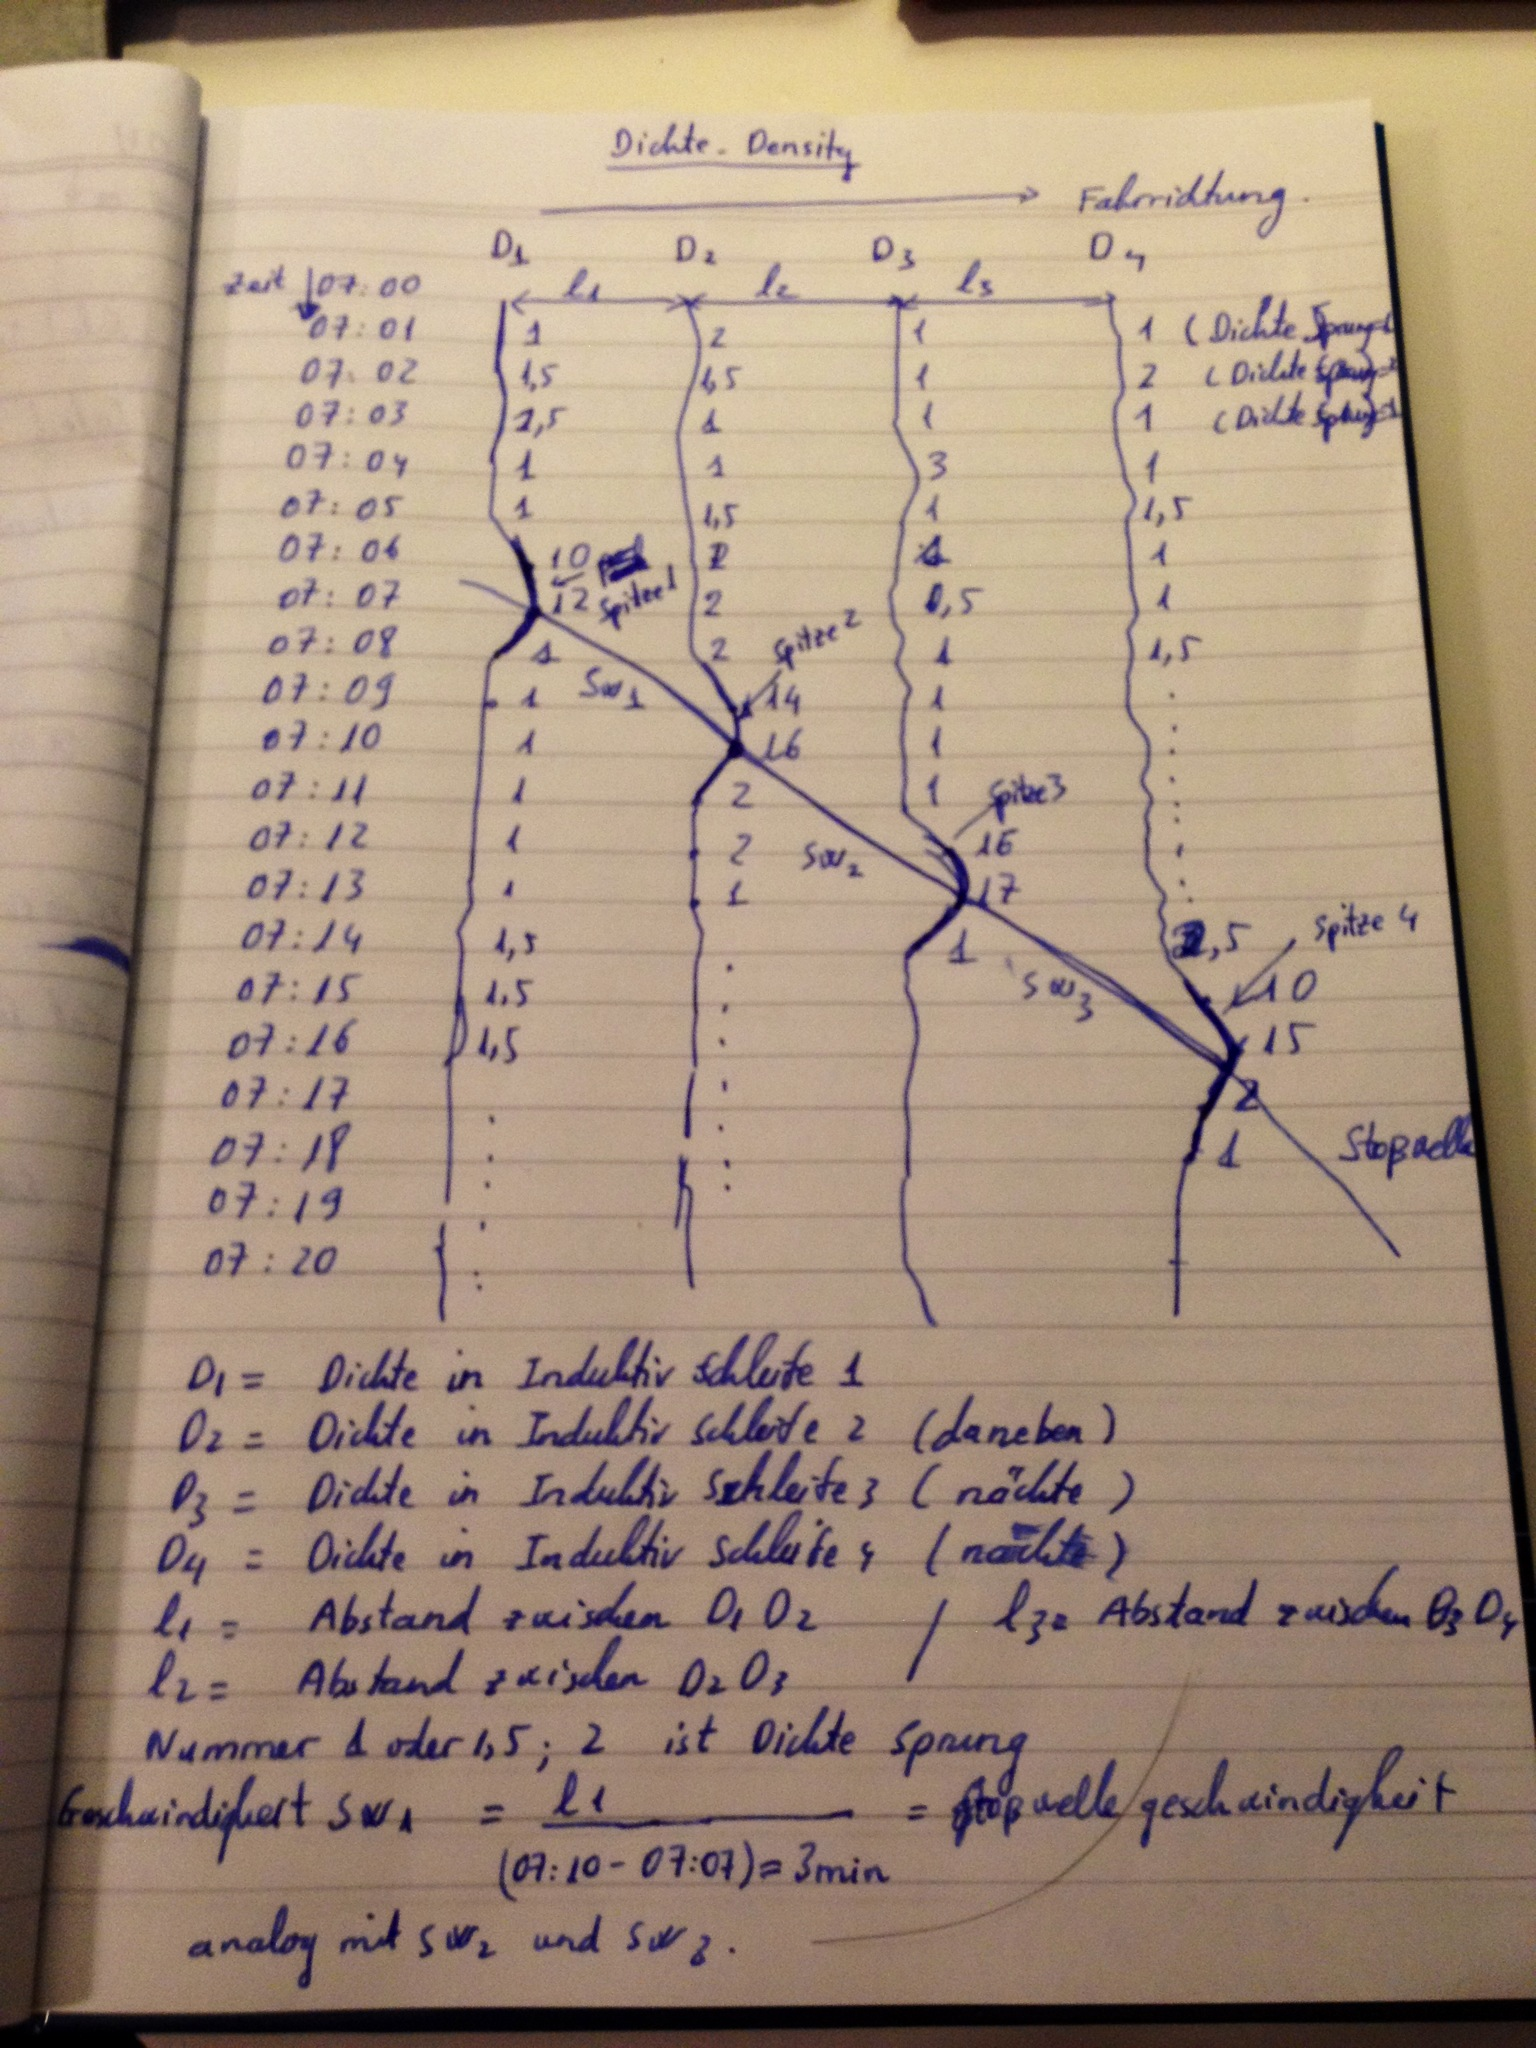 Dichte - Density
Fahrrichtung.
D1 D2 D3 D4
zeit 07:00 l1 l2 l3
07:01 1 2 1 1 (Dichte Sprung=1
07:02 1,5 1,5 1 2 (Dichte Sprung=2
07:03 1,5 1 1 1 (Dichte Sprung=1
07:04 1 1 3 1
07:05 1 1,5 1 1,5
07:06 10 2 1 1
07:07 12 Spitze1 2 0,5 1
07:08 1 2 Spitze2 1 1,5
07:09 1 Sw1 14 1 .
07:10 1 16 1 :
07:11 1 2 1 Spitze3 :
07:12 1 2 Sw2 16 .
07:13 1 1 17 :
07:14 1,5 . 1 2,5 Spitze 4
07:15 1,5 . Sw3 10
07:16 1,5 . 15
07:17 . 2
07:18 . : 1 Stoßwelle
07:19 . :
07:20 :
D1 = Dichte in Induktiv Schleife 1
D2 = Dichte in Induktiv Schleife 2 (daneben)
D3 = Dichte in Induktiv Schleife 3 (nächte)
D4 = Dichte in Induktiv Schleife 4 (nächte)
l1 = Abstand zwischen D1 D2 / l3= Abstand zwischen D3 D4
l2 = Abstand zwischen D2 D3
Nummer 1 oder 1,5 ; 2 ist Dichte Sprung
Geschwindigkeit Sw1 = l1 = Stoßwelle geschwindigkeit
(07:10 - 07:07) = 3min
analog mit Sw2 und Sw3.